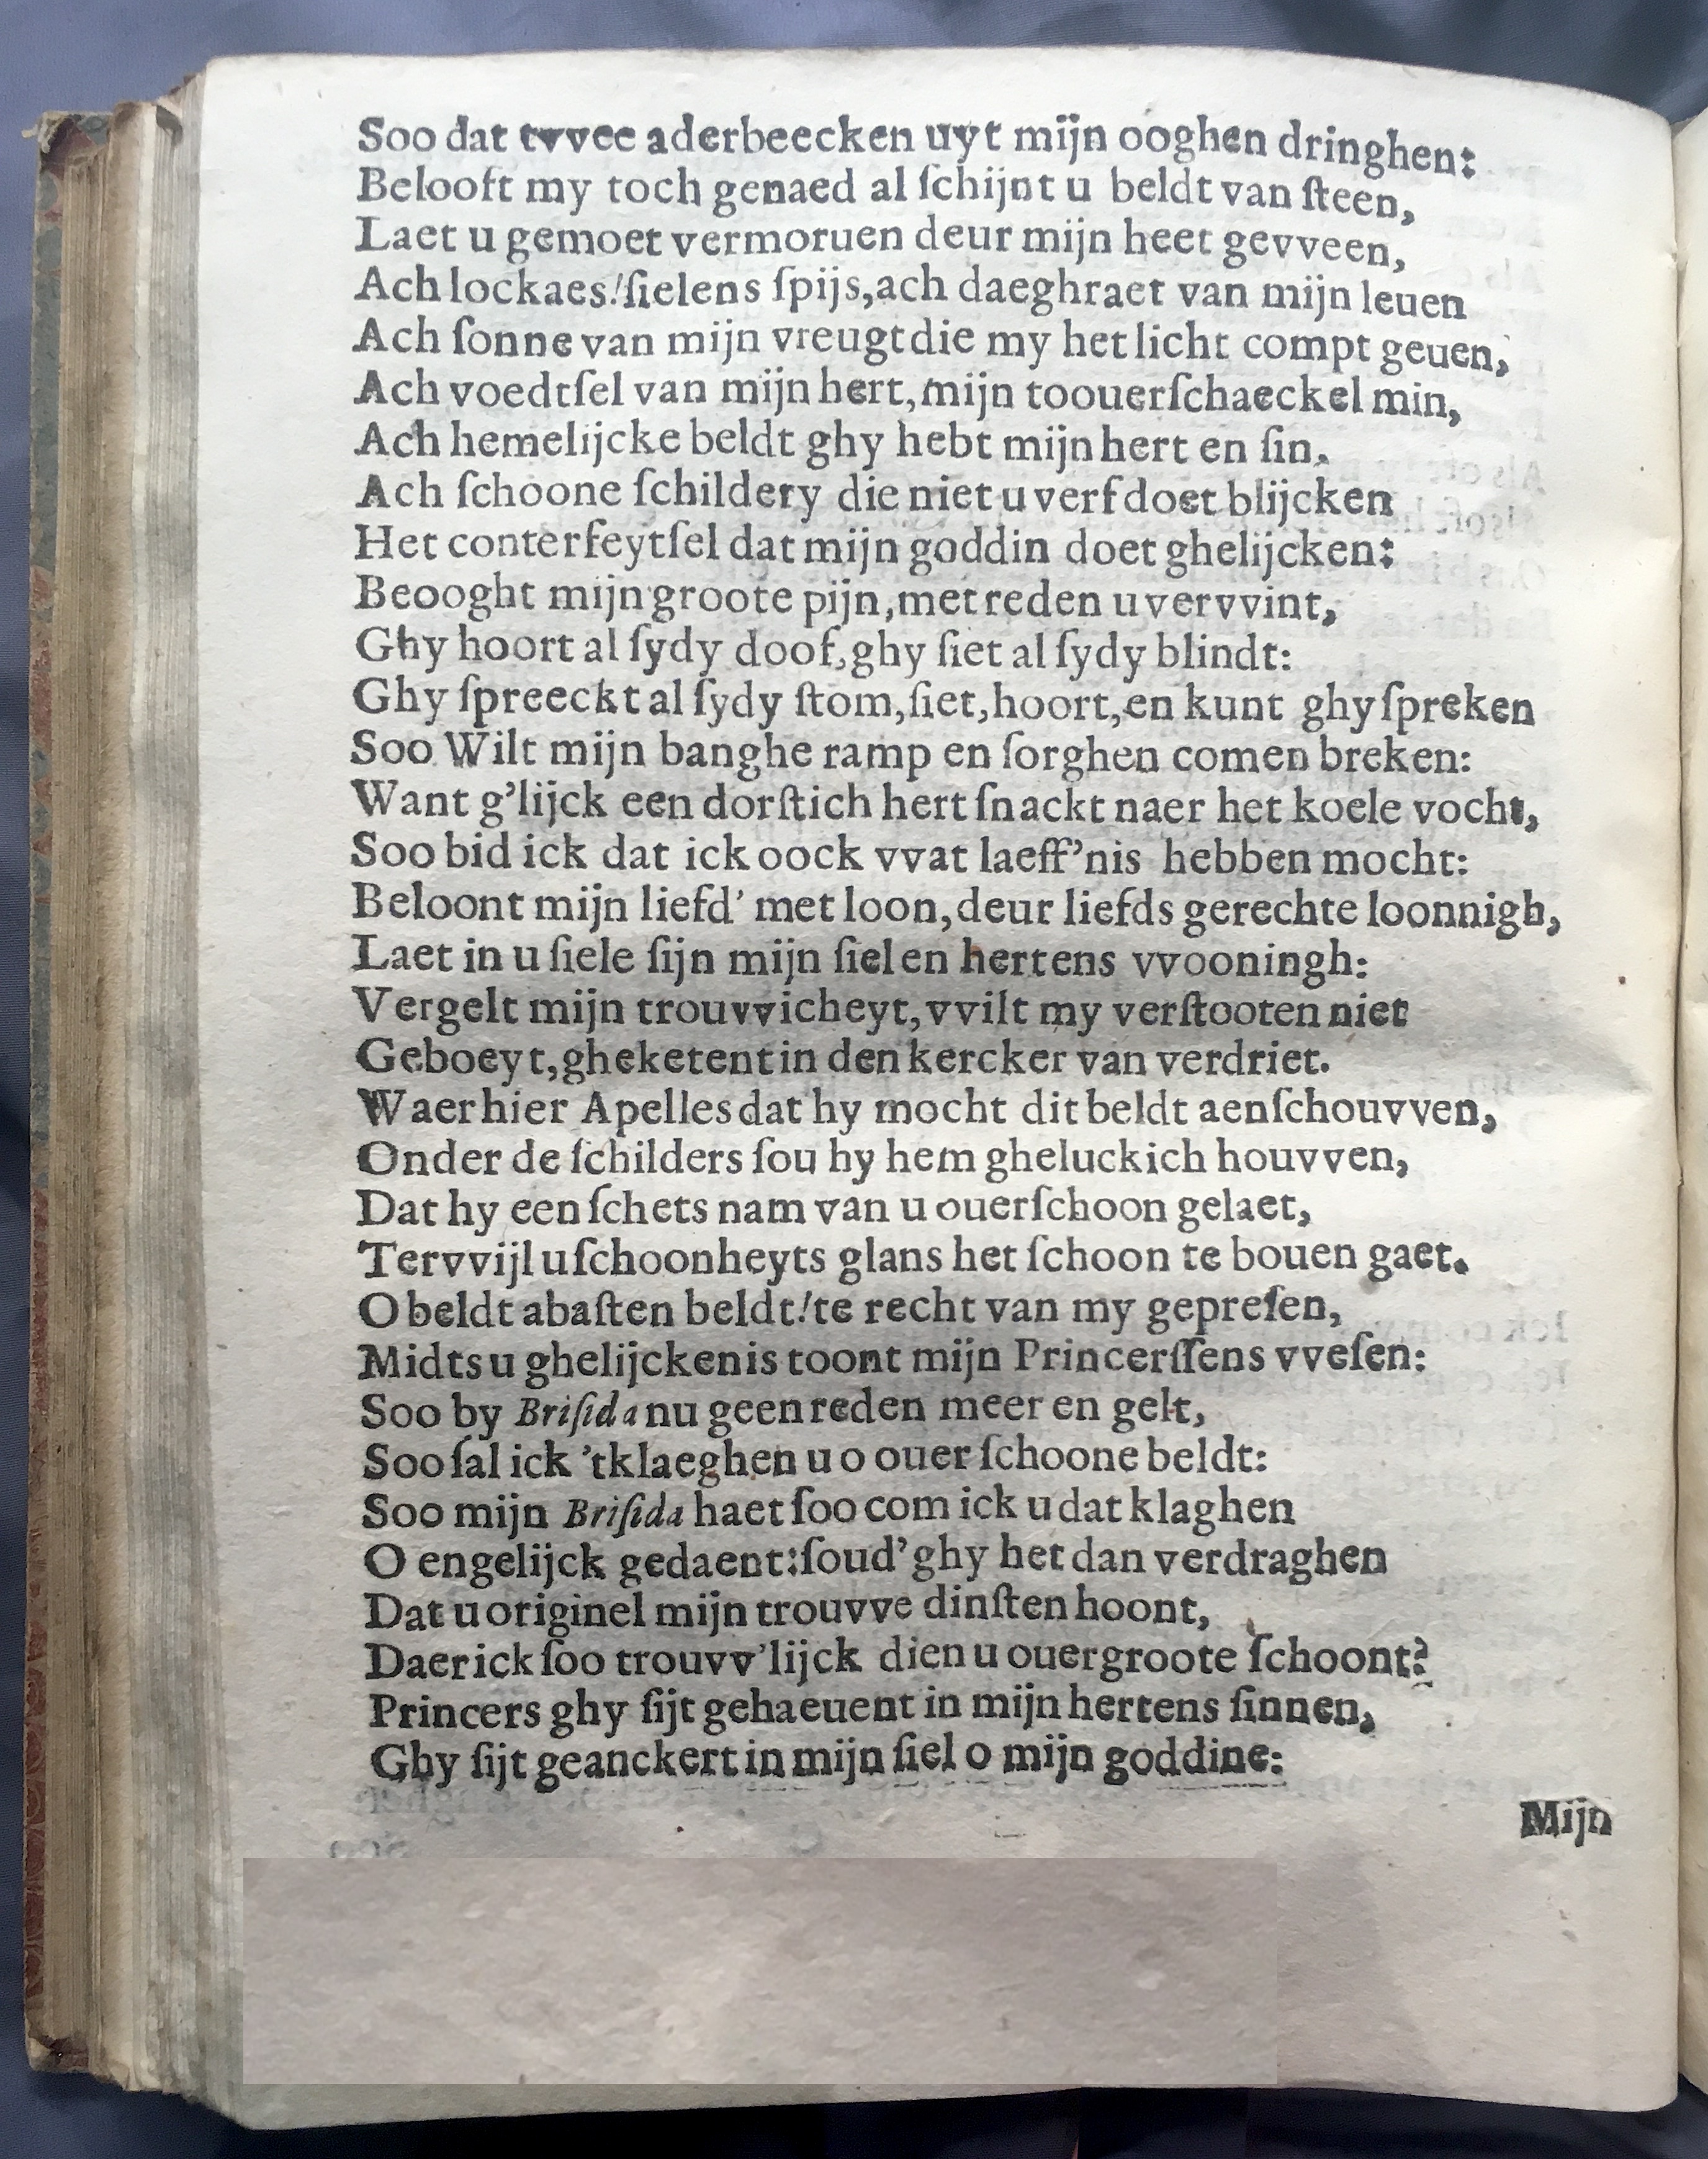 Soo dat tvvee aderbeecken uyt mijn ooghen dringhen:
Belooft my toch genaed al ſchijnt u beldt van ſteen,
Laet u gemoet vermoruen deur mijn heet gevveen,
Ach lockaes!ſielens ſpijs,ach daeghraet van mijn leuen
Ach ſonne van mijn vreugt die my het licht compt geuen,
Ach voedtſel van mijn hert,mijn toouerſchaeckel min,
Ach hemelijcke beldt ghy hebt mijn hert en ſin,
Ach ſchoone ſchildery die niet u verf doet blijcken
Het conterfeytſel dat mijn goddin doet ghelijcken:
Beooght mijn groote pijn,met reden u vervvint,
Ghy hoort al ſydy doof,ghy ſiet al ſydy blindt:
Ghy ſpreeckt al ſydy ſtom,ſiet,hoort,en kunt ghy ſpreken
Soo Wilt mijn banghe ramp en ſorghen comen breken:
Want g'lijck een dorſtich hert ſnackt naer het koele vocht,
Soo bid ick dat ick oock vvat laeff'nis hebben mocht:
Beloont mijn liefd' met loon,deur liefds gerechte loonnigh,
Laet in u ſiele ſijn mijn ſiel en hertens vvooningh:
Vergelt mijn trouvvicheyt,vvilt my verſtooten niet
Geboeyt,gheketent in den kercker van verdriet.
Waer hier Apelles dat hy mocht dit beldt aenſchouvven,
Onder de ſchilders ſou hy hem gheluckich houvven,
Dat hy een ſchets nam van u ouerſchoon gelaet,
Tervvijl u ſchoonheyts glans het ſchoon te bouen gaet.
O beldt abaſten beldt!te recht van my gepreſen,
Midts u ghelijckenis toont mijn Princerſſens vveſen:
Soo by Briſida nu geen reden meer en gelt,
Soo ſal ick 'tklaeghen u o ouer ſchoone beldt:
Soo mijn Briſida haet ſoo com ick u dat klaghen
O engelijck gedaent:ſoud' ghy het dan verdraghen
Dat u originel mijn trouvve dinſten hoont,
Daer ick ſoo trouvv'lijck dien u ouergroote ſchoont?
Princers ghy ſijt gehaeuent in mijn hertens ſinnen,
Ghy ſijt geanckert in mijn ſiel o mijn goddine:
Mijn